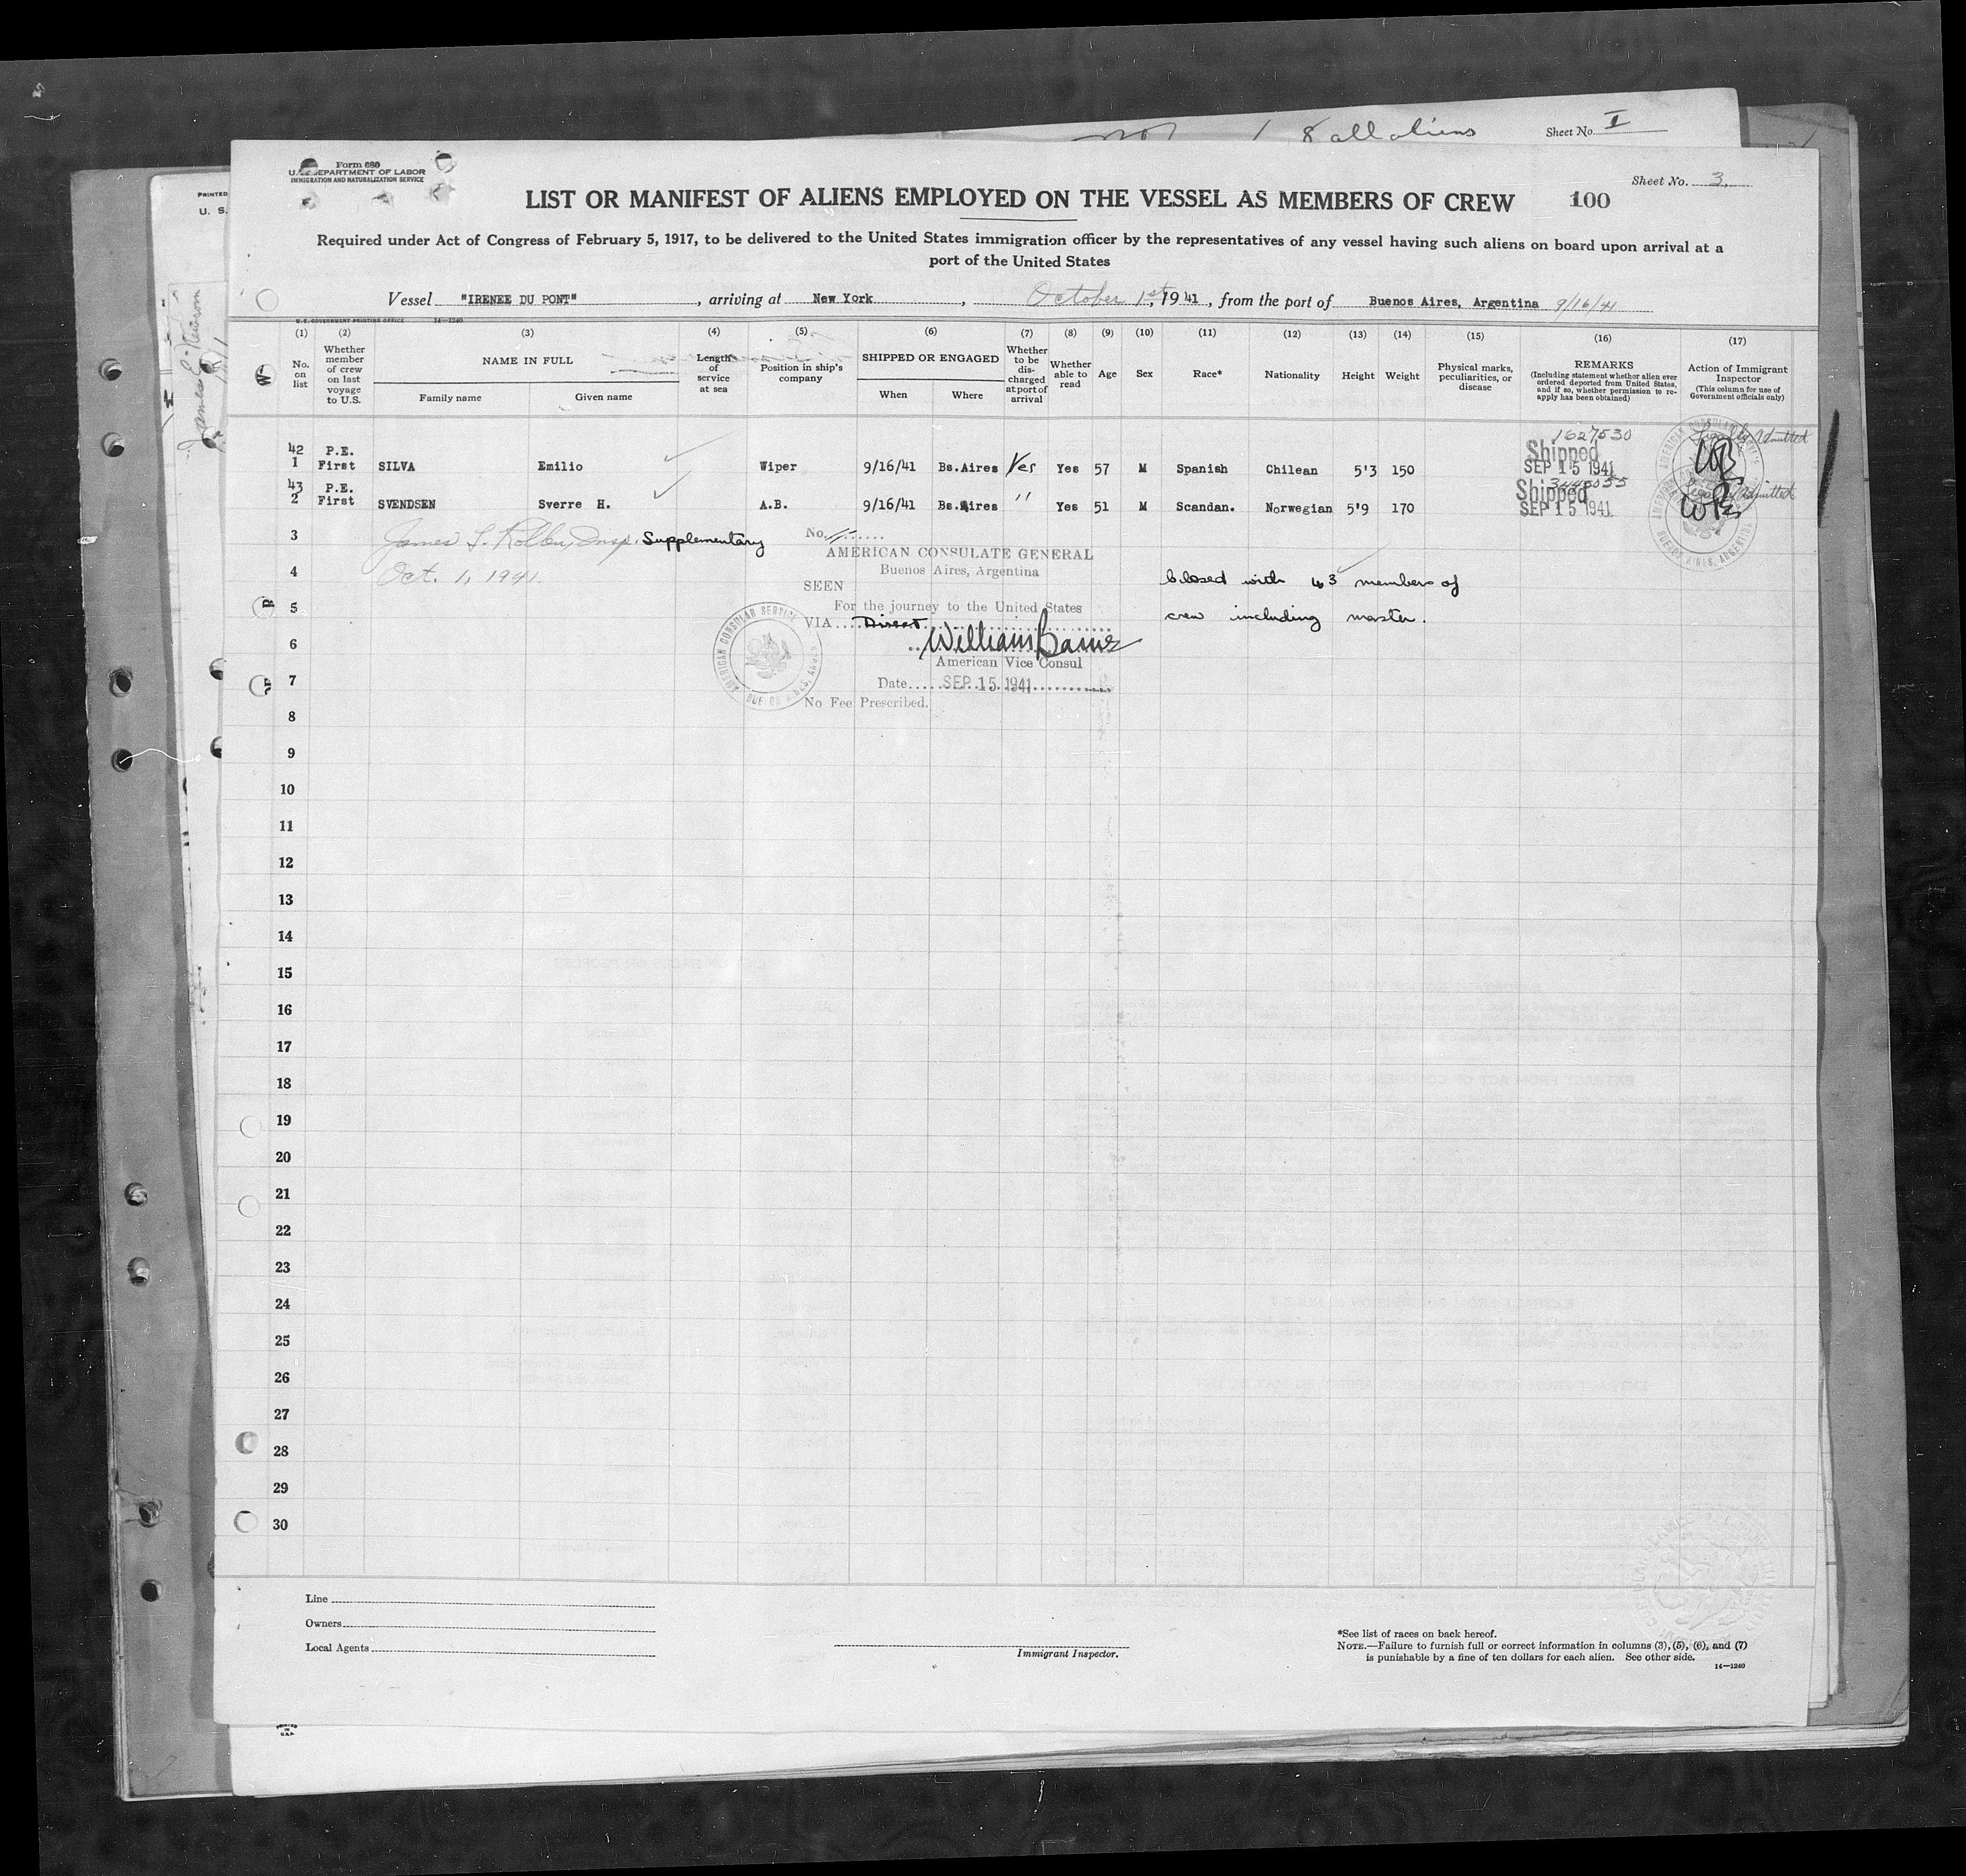 8 all aliens
Sheet No. I
Form 680
U.S. DEPARTMENT OF LABOR
IMMIGRATION AND NATURALIZATION SERVICE
PRINTED
U. S.
Sheet No. 3
LIST OR MANIFEST OF ALIENS EMPLOYED ON THE VESSEL AS MEMBERS OF CREW 100
Required under Act of Congress of February 5, 1917, to be delivered to the United States immigration officer by the representatives of any vessel having such aliens on board upon arrival at a
port of the United States
Vessel "IRENEE DU PONT", arriving at New York, October 1st, 1941, from the port of Buenos Aires, Argentina 9/16/41
U.S. GOVERNMENT PRINTING OFFICE 14—1240
(1) (2) (3) (4) (5) (6) (7) (8) (9) (10) (11) (12) (13) (14) (15) (16) (17)
No. on list
Whether member of crew on last voyage to U.S.
NAME IN FULL
Family name
Given name
Length of service at sea
Position in ship's company
SHIPPED OR ENGAGED
When
Where
Whether to be discharged at port of arrival
Whether able to read
Age
Sex
Race*
Nationality
Height
Weight
Physical marks, peculiarities, or disease
REMARKS
(Including statement whether alien ever ordered deported from United States, and if so, whether permission to re-apply has been obtained)
Action of Immigrant Inspector
(This column for use of Government officials only)
42 P.E. 1627530
1 First SILVA Emilio Wiper 9/16/41 Bs.Aires Yes Yes 57 M Spanish Chilean 5'3 150 Shipped SEP 15 1941 Admitted
43 P.E.
2 First SVENDSEN Sverre H. A.B. 9/16/41 Bs.Aires " Yes 51 M Scandan. Norwegian 5'9 170 Shipped SEP 15 1941 Admitted
3 James Insp. Supplementary No.
AMERICAN CONSULATE GENERAL
4 Oct. 1, 1941 Buenos Aires, Argentina
SEEN
closed with 43 members of
5 For the journey to the United States
crew including master.
VIA Direct
6 William
American Vice Consul
7 Date SEP 15 1941
No Fee Prescribed.
AMERICAN CONSULAR SERVICE
8
9
10
11
12
13
14
15
16
17
18
19
20
21
22
23
24
25
26
27
28
29
30
Line
Owners
Local Agents
Immigrant Inspector.
*See list of races on back hereof.
NOTE.—Failure to furnish full or correct information in columns (3), (5), (6), and (7)
is punishable by a fine of ten dollars for each alien. See other side.
14—1240